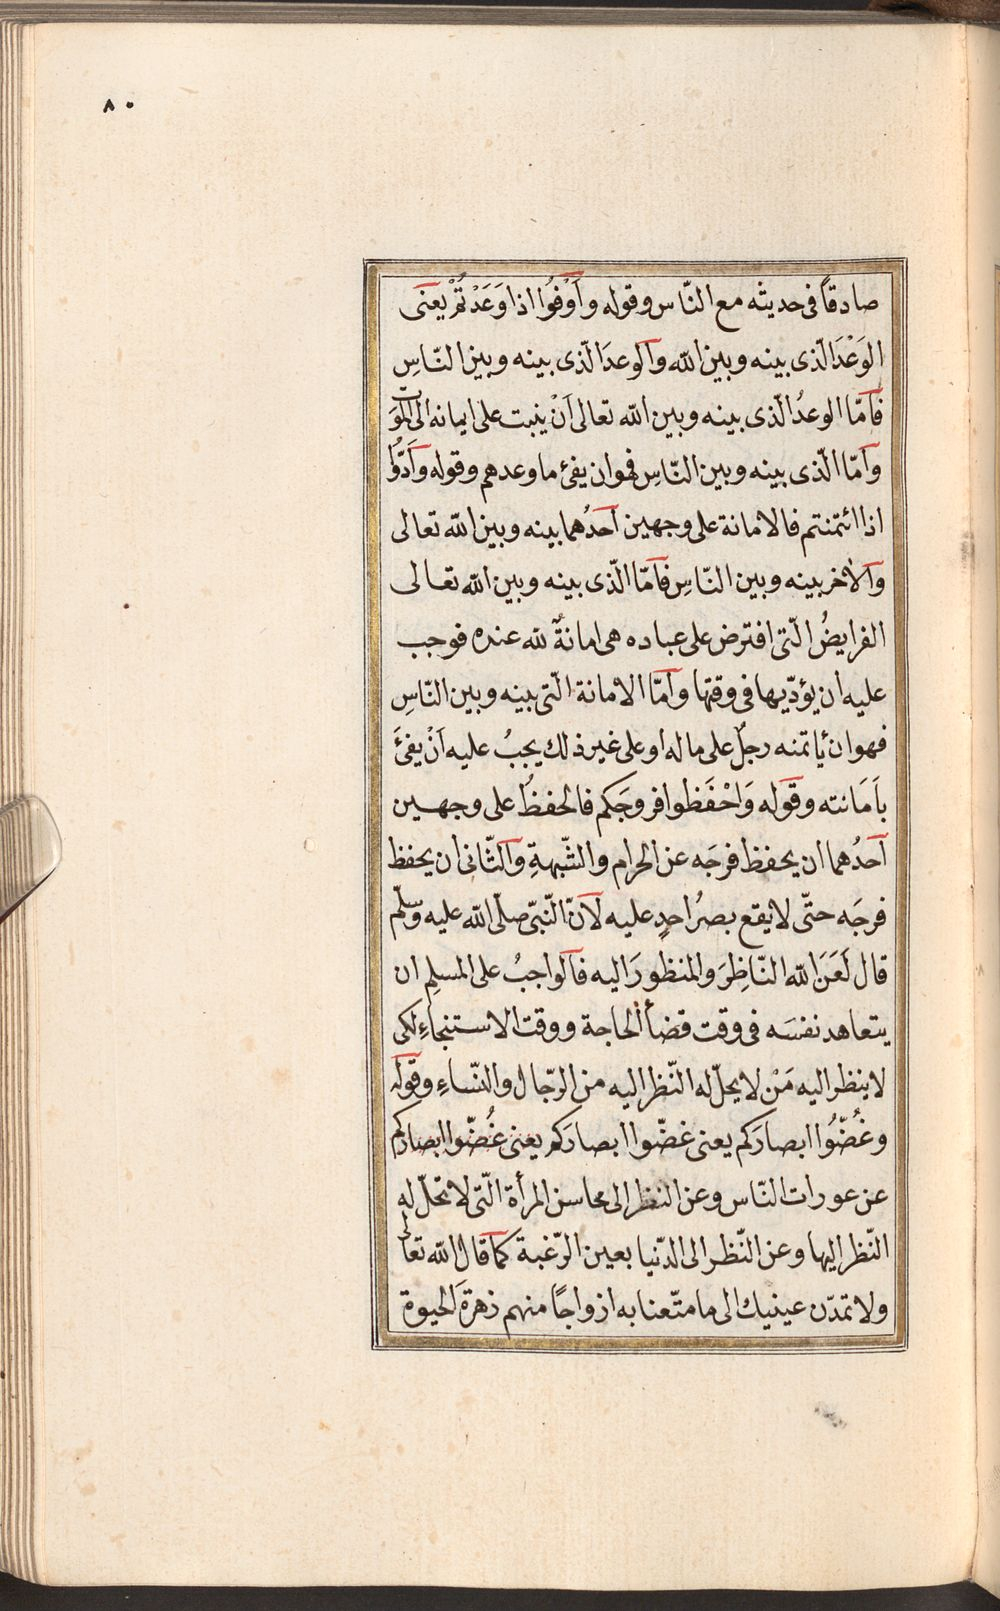 ٨٠
صادقاً فى حديثه مع النّاس وقوله وَأَوْفُوا اذا وَعَدْتُمْ يعنى
الوَعْدَ الّذى بينه وبين اللّه والوعدَ الّذى بينه وبين النّاسِ
فأمّا الوعدُ الّذى بينه وبين اللّه تعالى اَنْ يثبت على ايمانه الى الموت
وأمّا الّذى بينه وبين النّاسِ فهو ان يفئ ما وعدهم وقوله وَأَدُّوا
اذا ائتمنتم فالامانة على وجهين أحدُهما بينه وبين اللّه تعالى
والأخر بينه وبين النّاسِ فأمّا الّذى بينه وبين اللّه تعالى
الفرايضُ الّتى افترض على عباده هى امانةٌ للّه عنده فوجب
عليه ان يؤدّيها فى وقتها وأمّا الامانة الّتى بينه وبين النّاسِ
فهو ان يأتمنه رجلٌ على ماله او على غير ذلك يجبُ عليه اَنْ يفئَ
بأَمَانته وقوله وَاحْفَظوا فروجَكم فالحفظُ على وجهين
أحدُهما ان يحفظ فرجَه عن الحرام والشّبهةِ والثّانى ان يحفظ
فرجَه حتّى لا يقع بصرُ احدٍ عليه لأنّ النّبىّ صلّى اللّه عليه وسلّم
قال لَعَنَ اللّه النّاظِرَ والمنظورَ اليه فالواجبُ على المسلِمِ ان
يتعاهد نفسَه فى وقت قضأ الحاجة ووقت الاستنجاءِ لكى
لا ينظر اليه مَنْ لا يحلّ له النّظر اليه من الرّجال والنّساءِ وقوله
وغُضُّوا ابصارَكم يعنى غضّوا ابصارَكم يعنى غُضّوا ابصاركم
عن عورات النّاس وعن النظر الى محاسن المرأة الّتى لا تحلّ له
النّظر اليها وعن النّظر الى الدّنيا بعين الرّغبة كما قال اللّه تعالى
ولا تمدّن عينيك الى ما متّعنا به ازواجًا منهم زهرةَ الحيوة